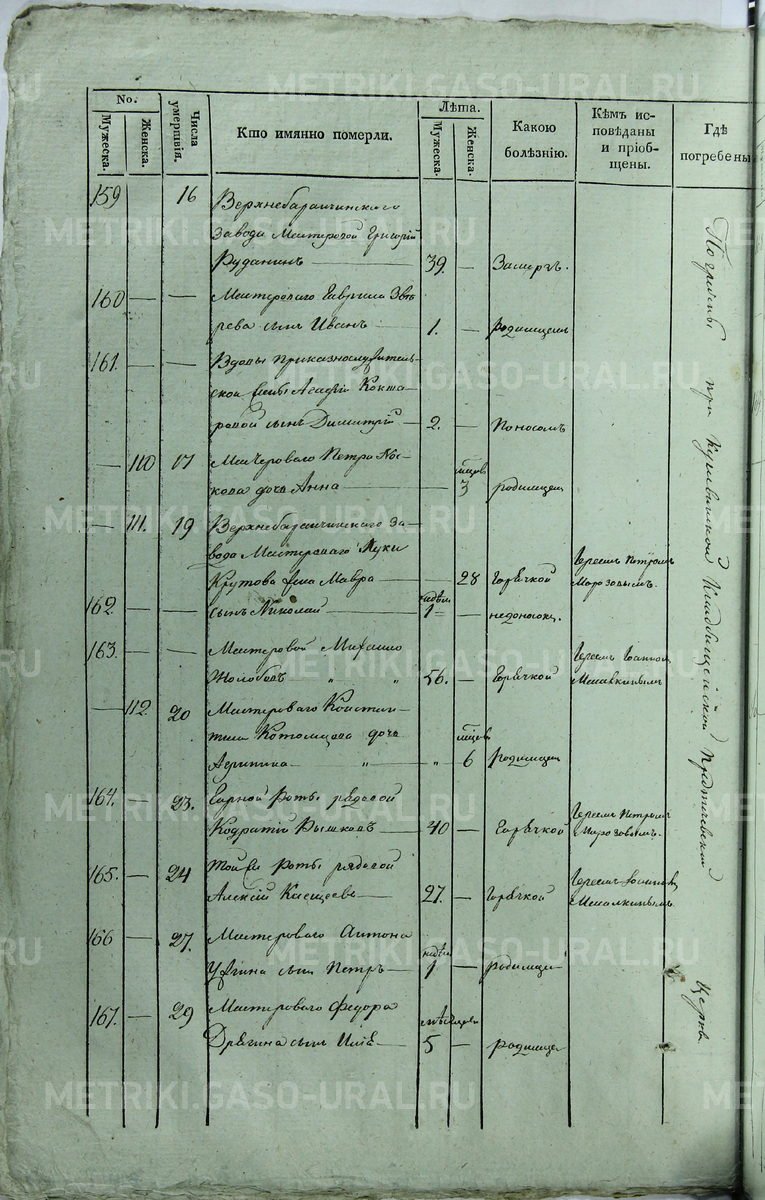 No.
Мужеска.
Женска.
Числа умерщвія.
Кто имянно померли.
Лѣта.
Мужеска.
Женска.
Какою болѣзнію.
Кѣмъ исповѣданы и пріобщены.
Гдѣ погребены
159 16 Верхнебаранчинскаго
завода Мастеровой Григорій
Руданинъ — 39. — Замерзъ.
160 — — Мастероваго Гаврила Звѣ
рева сынъ Иванъ — 1. — родимцемъ
161. — — Вдовы приказнослужитель
ской жены Агафіи Кокша
ровой сынъ Димитрій — 2. — Поносомъ
— 110 17 Мастероваго Петра Но
скова дочь Анна — — 3 мцов родимцем
— 111. 19 Верхнебаранчинскаго за
вода Мастероваго Луки
Крутова жена Мавра — 28 Горячкой Іереемъ Петромъ
Морозовымъ.
162. — — сынъ Николай — 1 недѣли — недоноском.
163. — — Мастеровой Михаило
Жолобовъ " " 56. — Горячкой Іереемъ Іоанном
Мешалкинымъ
— 112 20 Мастероваго Констан
тина Котомцева дочь
Агрипина — " — " 6 мцов Родимцем
164. — 23. Горной Роты рядовой
Кодратій Пышковъ — 40 — Горячкой Іереемъ Петромъ
Морозовымъ.
165. — 24 Той же Роты рядовой
Алексій Кисщеевъ — 27. — Горячкой Іереемъ Іоанном
Мешалкинымъ
166 — 27. Мастероваго Антона
сынъ Петръ — 1 недѣли — родимцем
167. — 29 Мастероваго Федора
Дрягина сынъ Илія — 5 мѣсяцовъ — родимцем
Погребены при Кушвинской Кладбищенской Предтечевской Церкви
METRIKI.GASO-URAL.RU